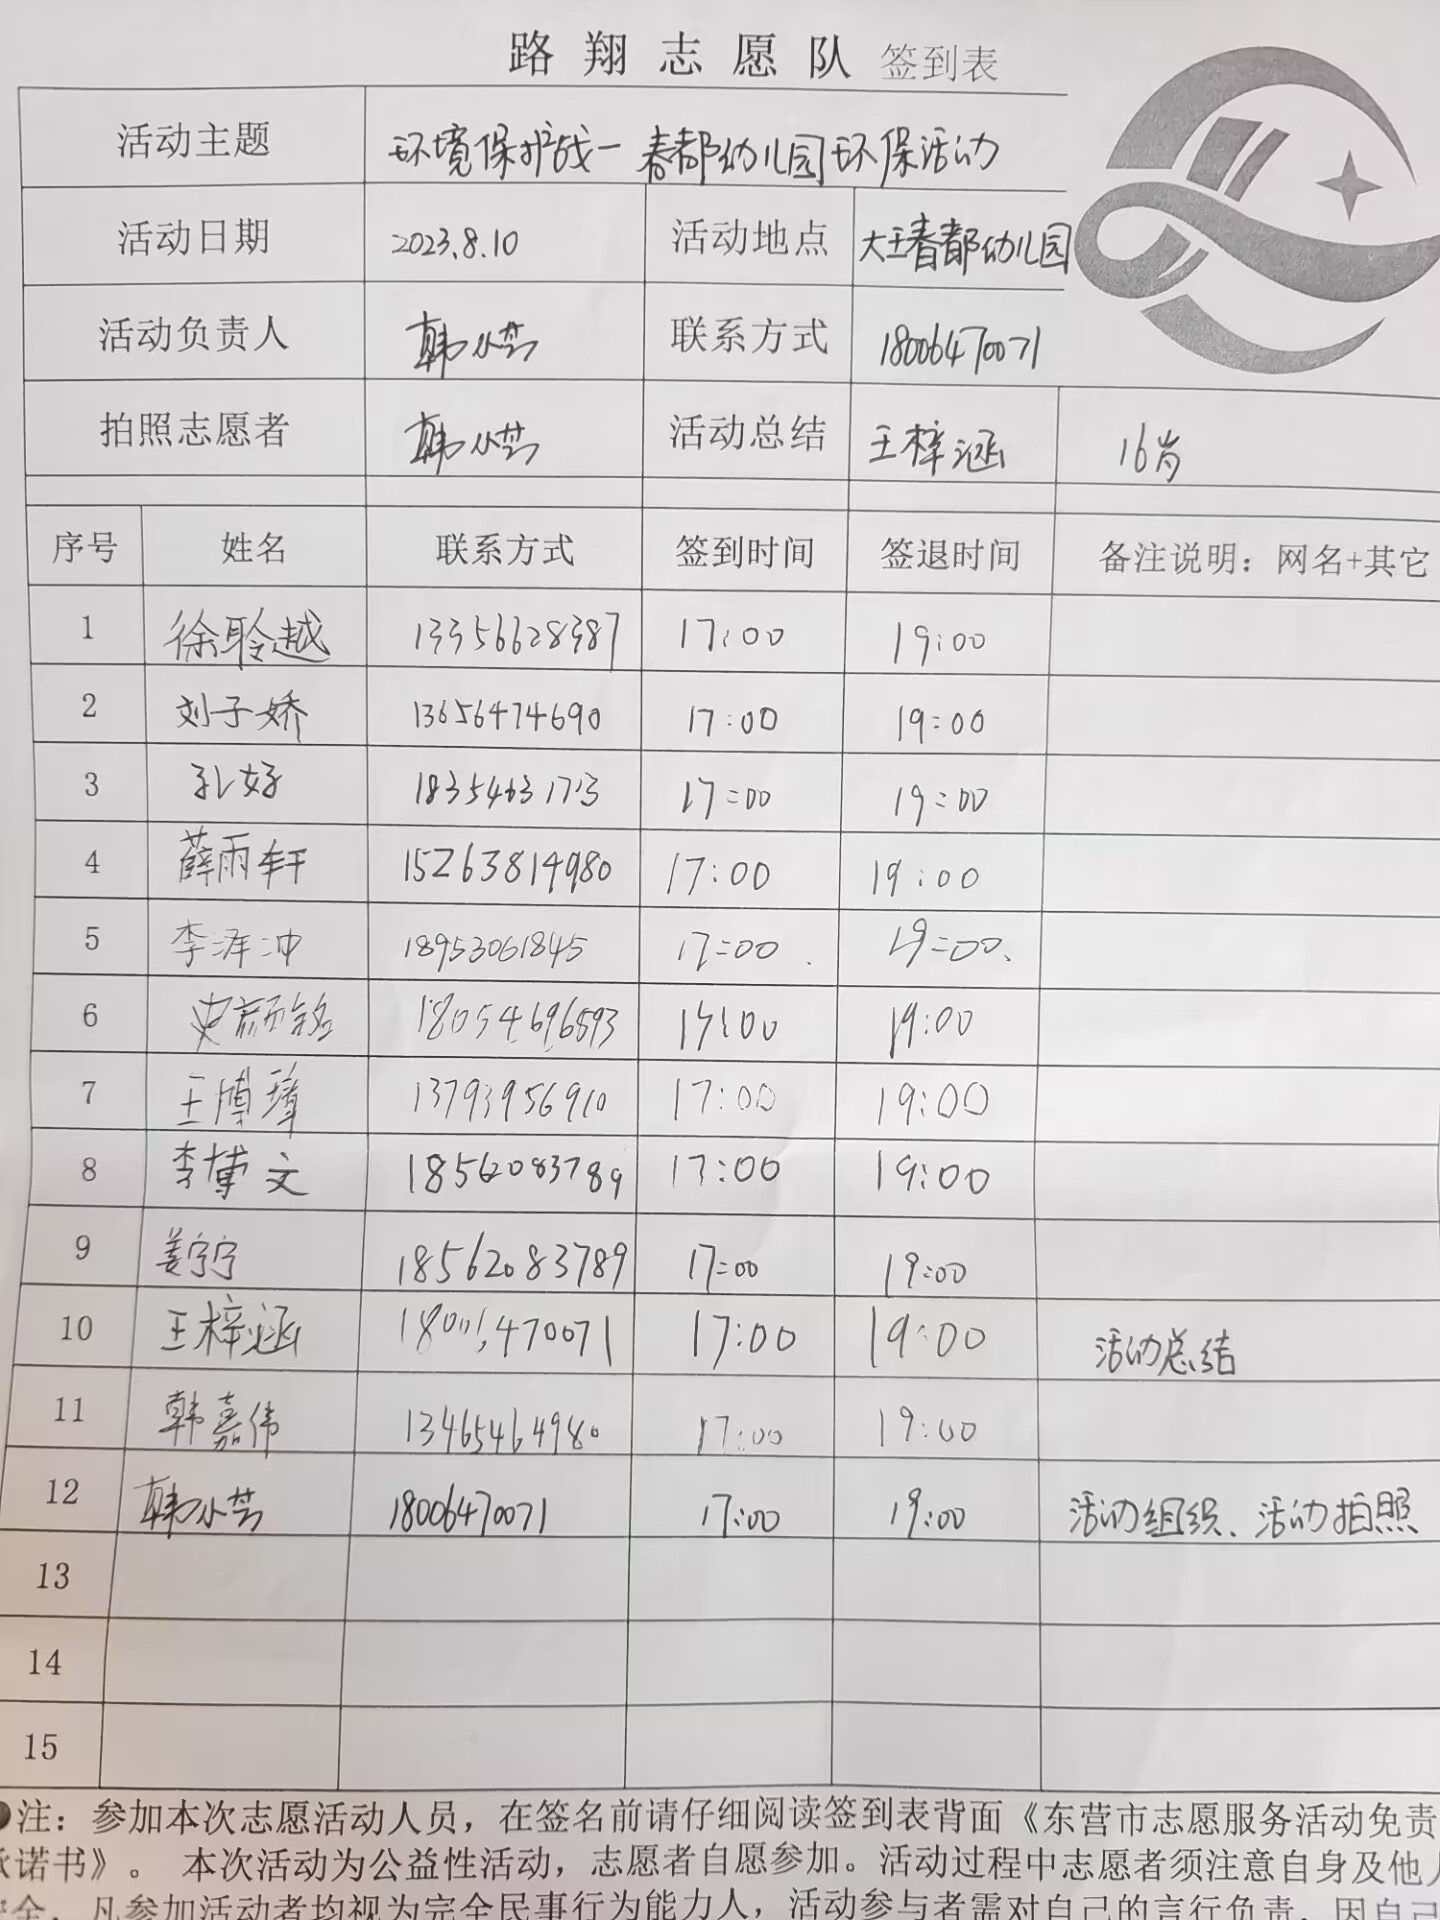 路翔志愿队 签到表
活动主题 环境保护战一春都幼儿园环保活动
活动日期 2023.8.10 活动地点 大王春都幼儿园
活动负责人 韩小芸 联系方式 18006470071
拍照志愿者 韩小芸 活动总结 王梓涵 16岁
序号 姓名 联系方式 签到时间 签退时间 备注说明：网名+其它
1 徐聆越 13356628387 17:00 19:00
2 刘子娇 13656474690 17:00 19:00
3 孔好 18354631713 17:00 19:00
4 薛雨轩 15263814980 17:00 19:00
5 李泽冲 18953061845 17:00 19:00
6 史颜铭 18054696593 17:00 19:00
7 王博璋 13793956910 17:00 19:00
8 李博文 18562083789 17:00 19:00
9 姜宁宁 18562083789 17:00 19:00
10 王梓涵 18006470071 17:00 19:00 活动总结
11 韩嘉伟 13465464980 17:00 19:00
12 韩小芸 18006470071 17:00 19:00 活动组织、活动拍照
13
14
15
●注：参加本次志愿活动人员，在签名前请仔细阅读签到表背面《东营市志愿服务活动免责
承诺书》。 本次活动为公益性活动，志愿者自愿参加。活动过程中志愿者须注意自身及他人
安全，凡参加活动者均视为完全民事行为能力人，活动参与者需对自己的言行负责，因自己